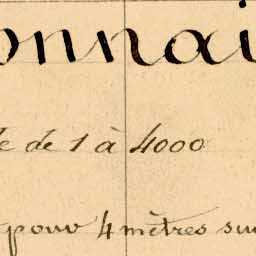 onnai
le de 1 à 4000
pour 4 mètres sur